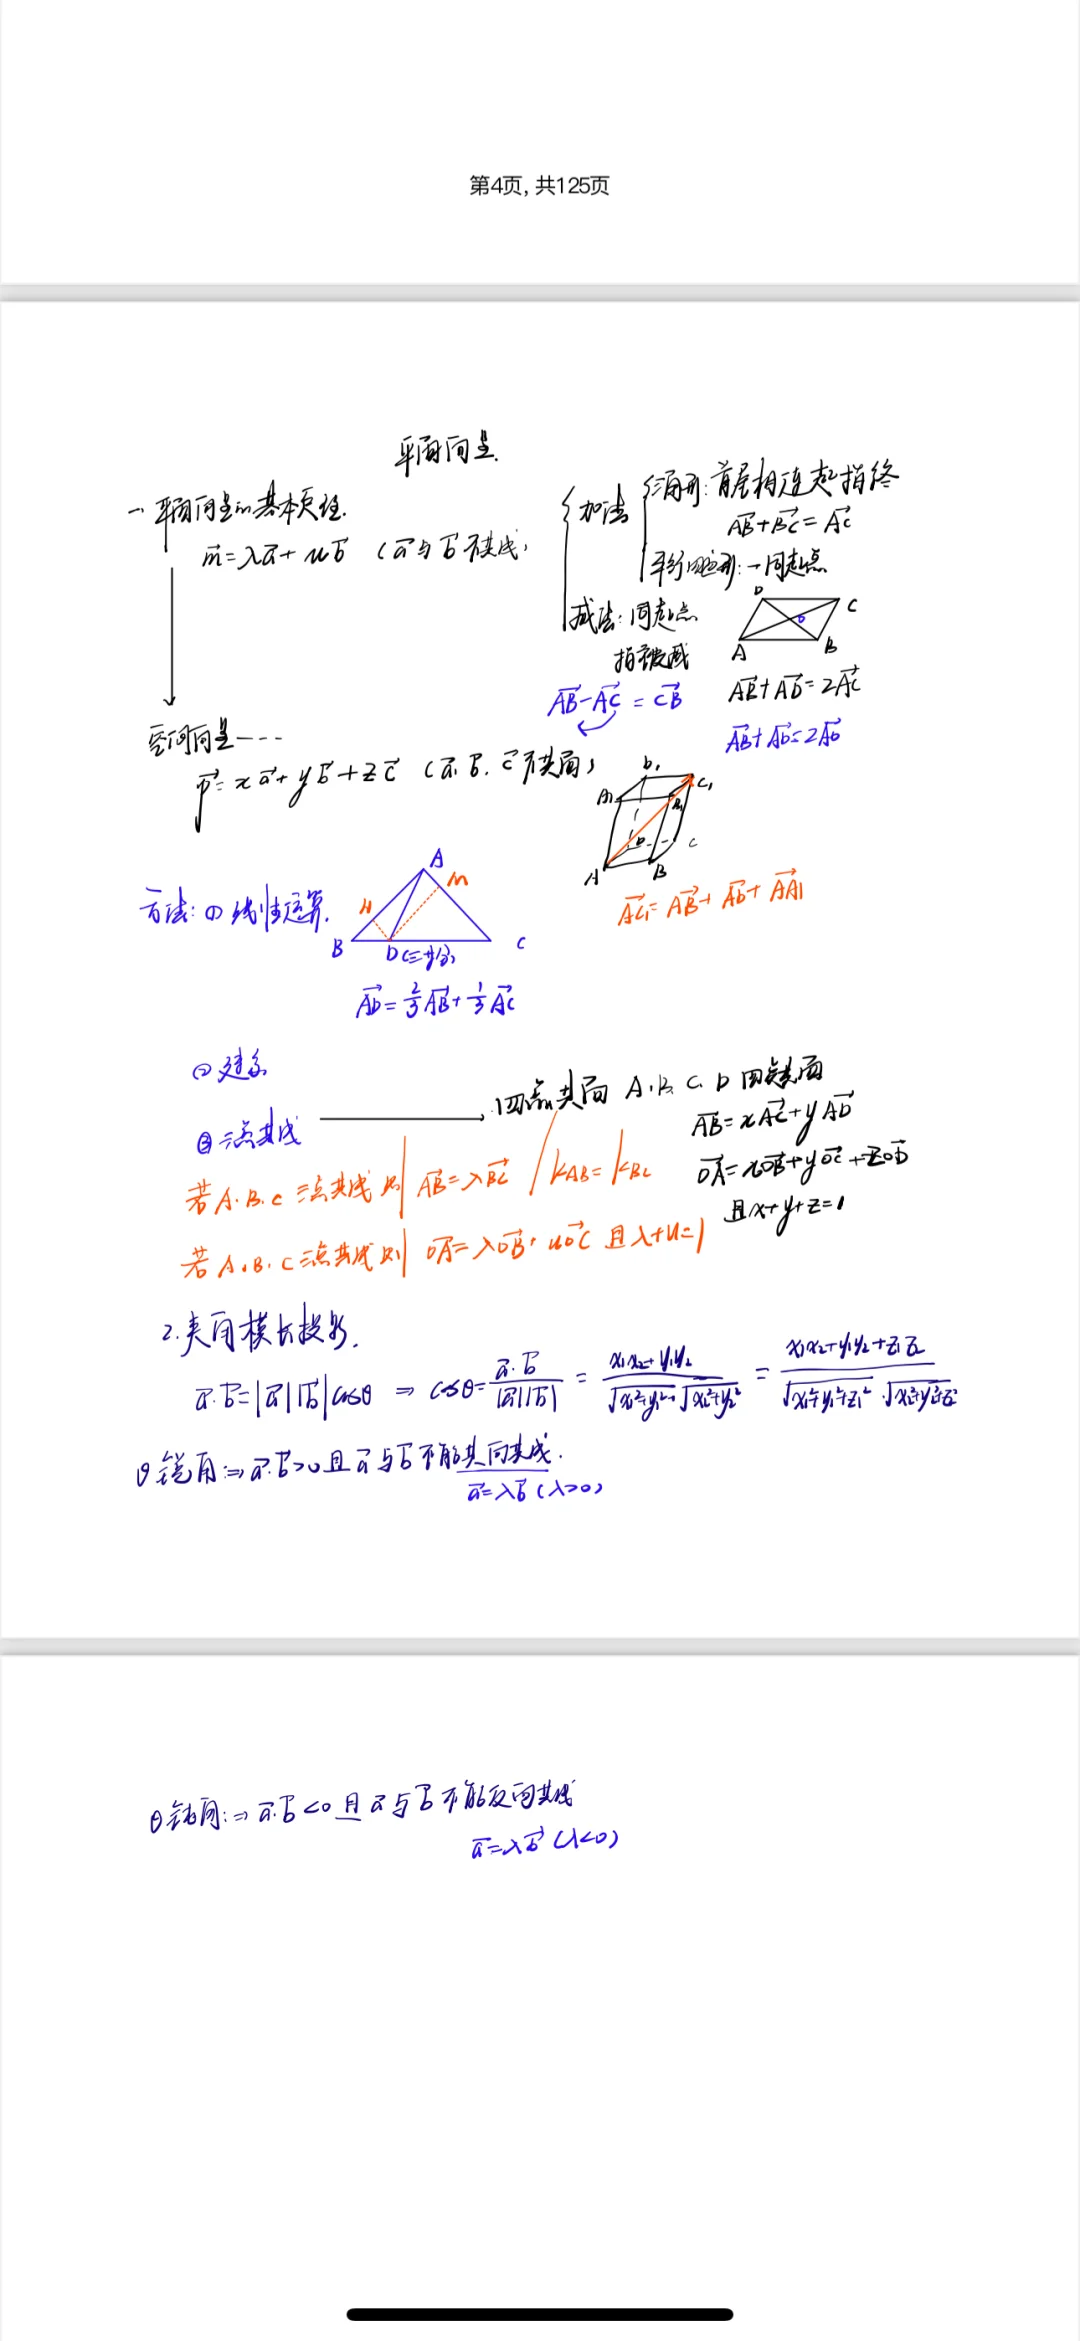 第4页, 共125页
平面向量.
一 平面向量的基本定理.
m⃗=λa⃗+ub⃗ (a⃗与b⃗不共线)
加法
三角形: 首尾相连 起指终
AB⃗+BC⃗=AC⃗
平行四边形: 一同起点
D C
O
A B
减法: 同起点
指被减
AB⃗-AC⃗=CB⃗
AB⃗+AD⃗=2AC⃗
AB⃗+AD⃗=2AO⃗
空间向量----
p⃗=xa⃗+yb⃗+zc⃗ (a⃗.b⃗.c⃗不共面)
D₁ C₁
A₁ B₁
D C
A B
AC₁⃗=AB⃗+AD⃗+AA₁⃗
方法: ① 线性运算.
A
M
H
B D(三等分) C
AD⃗=2/3AB⃗+1/3AC⃗
② 建系
③ 三点共线
四点共面 A.B.C.D 四点共面
AB⃗=xAC⃗+yAD⃗
OA⃗=xOB⃗+yOC⃗+zOD⃗
且x+y+z=1
若A.B.C三点共线则 AB⃗=λBC⃗ / kAB=kBC
若A.B.C三点共线则 OA⃗=λOB⃗+uOC⃗ 且λ+u=1
2.夹角模长投影.
a⃗·b⃗=|a⃗||b⃗|cosθ ⇒ cosθ=a⃗·b⃗/|a⃗||b⃗| = x₁x₂+y₁y₂/√x₁²+y₁²·√x₂²+y₂² = x₁x₂+y₁y₂+z₁z₂/√x₁²+y₁²+z₁²·√x₂²+y₂²+z₂²
θ锐角:⇒a⃗·b⃗>0且a⃗与b⃗不能共向共线.
a⃗=λb⃗(λ>0)
θ钝角:⇒a⃗·b⃗<0且a⃗与b⃗不能反向共线
a⃗=λb⃗(λ<0)